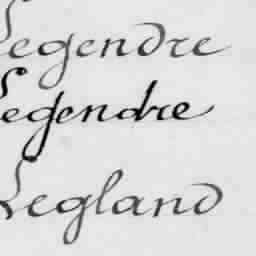 Legendre
Legendre
Legland